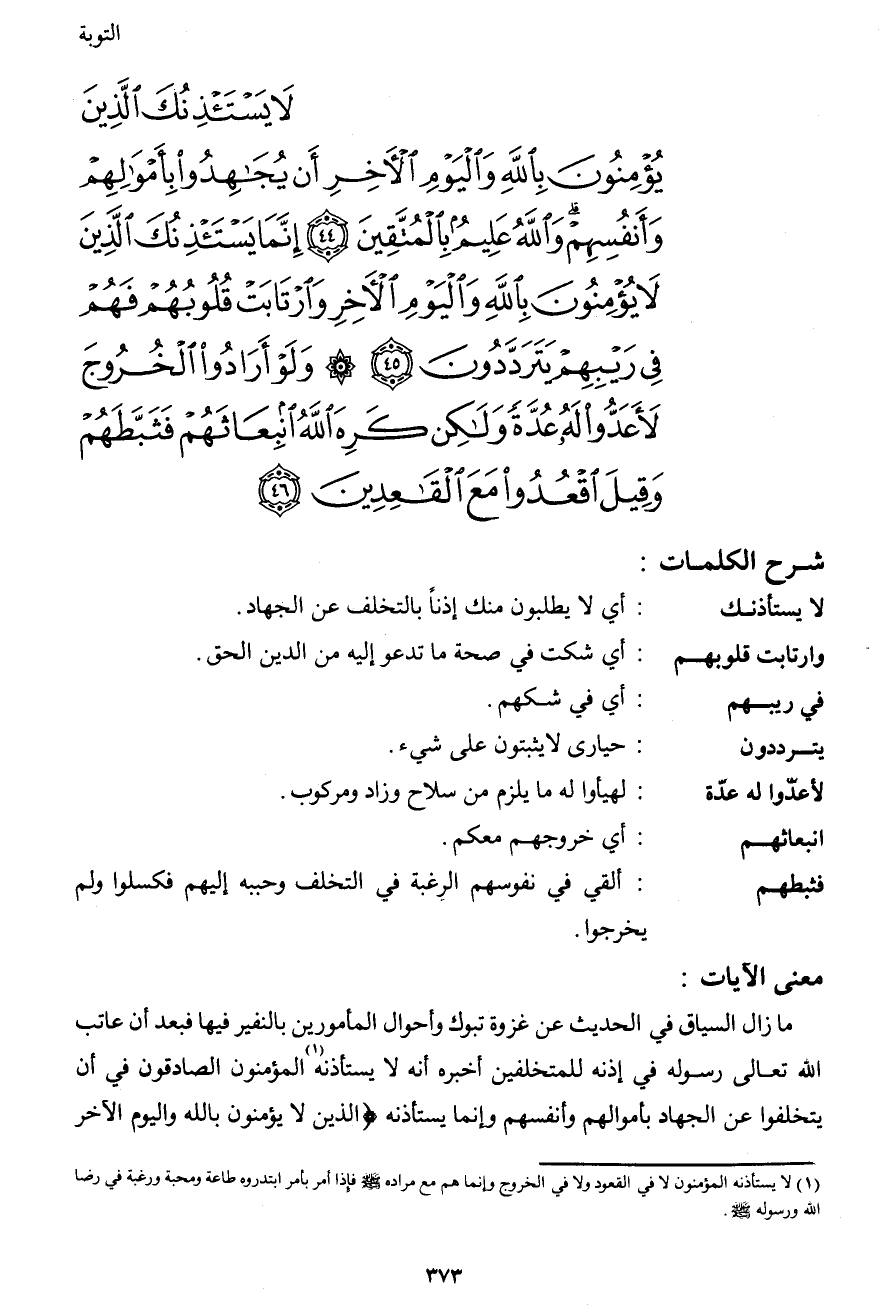 التوبة
لَا يَسْتَـْٔذِنُكَ ٱلَّذِينَ
يُؤْمِنُونَ بِٱللَّهِ وَٱلْيَوْمِ ٱلْأَخِرِ أَن يُجَـٰهِدُوا۟ بِأَمْوَٰلِهِمْ
وَأَنفُسِهِمْ ۗ وَٱللَّهُ عَلِيمٌۢ بِٱلْمُتَّقِينَ ٤٤ إِنَّمَا يَسْتَـْٔذِنُكَ ٱلَّذِينَ
لَا يُؤْمِنُونَ بِٱللَّهِ وَٱلْيَوْمِ ٱلْأَخِرِ وَٱرْتَابَتْ قُلُوبُهُمْ فَهُمْ
فِى رَيْبِهِمْ يَتَرَدَّدُونَ ٤٥ ۞ وَلَوْ أَرَادُوا۟ ٱلْخُرُوجَ
لَأَعَدُّوا۟ لَهُۥ عُدَّةً وَلَـٰكِن كَرِهَ ٱللَّهُ ٱنۢبِعَاثَهُمْ فَثَبَّطَهُمْ
وَقِيلَ ٱقْعُدُوا۟ مَعَ ٱلْقَـٰعِدِينَ ٤٦
شرح الكلمات :
لا يستأذنك : أي لا يطلبون منك إذناً بالتخلف عن الجهاد .
وارتابت قلوبهم : أي شكت في صحة ما تدعو إليه من الدين الحق .
في ريبهم : أي في شكهم .
يترددون : حيارى لايثبتون على شيء .
لأعدّوا له عدّة : لهيأوا له ما يلزم من سلاح وزاد ومركوب .
انبعاثهم : أي خروجهم معكم .
فثبطهم : ألقي في نفوسهم الرغبة في التخلف وحببه إليهم فكسلوا ولم
يخرجوا .
معنى الآيات :
ما زال السياق في الحديث عن غزوة تبوك وأحوال المأمورين بالنفير فيها فبعد أن عاتب
الله تعالى رسوله في إذنه للمتخلفين أخبره أنه لا يستأذنه(١) المؤمنون الصادقون في أن
يتخلفوا عن الجهاد بأموالهم وأنفسهم وإنما يستأذنه ﴿الذين لا يؤمنون بالله واليوم الآخر
(١) لا يستأذنه المؤمنون لا في القعود ولا في الخروج وإنما هم مع مراده ﷺ فإذا أمر بأمر ابتدروه طاعة ومحبة ورغبة في رضا
الله ورسوله ﷺ .
٣٧٣